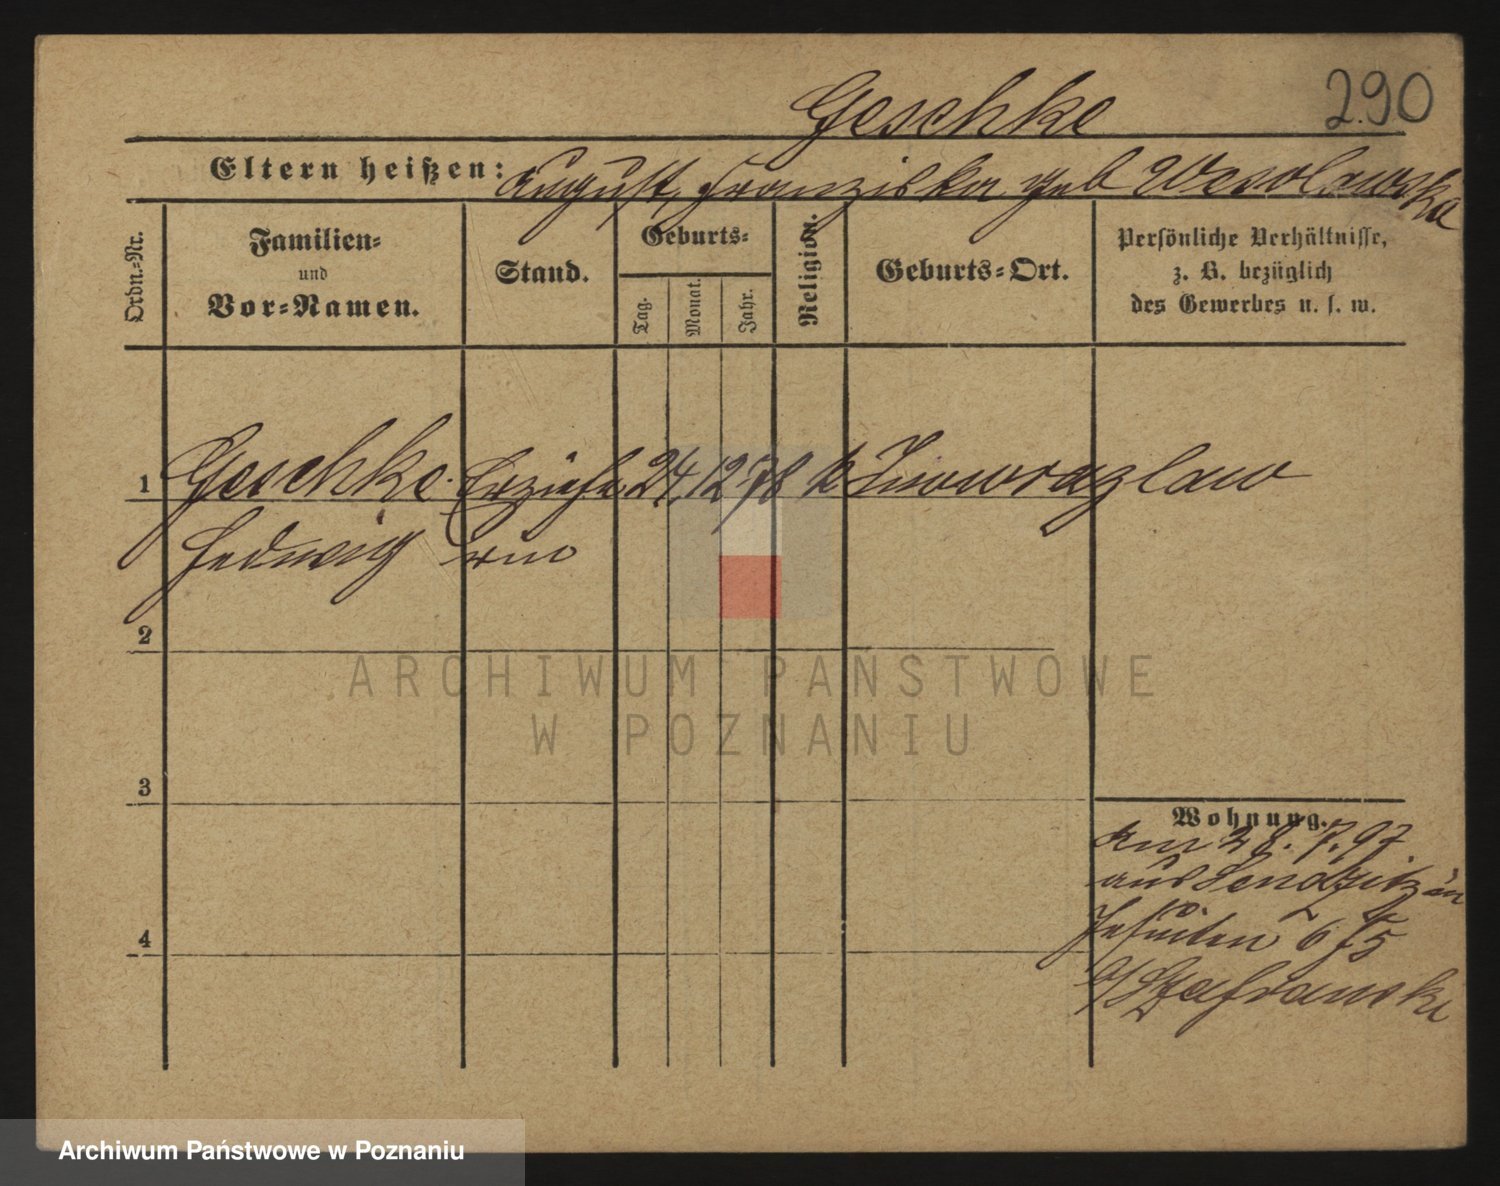 Geschke 290
Eltern heißen: August, Franziska geb Wesolowska
Ordn.-Nr.
Familien-
und
Vor-Namen.
Stand.
Geburts-
Tag.
Monat.
Jahr.
Religion.
Geburts-Ort.
Persönliche Verhältnisse,
z. B. bezüglich
des Gewerbes u. s. w.
1 Geschke Erziehe 24. 12 78 k Inowrazlaw
Hedwig rin
2
3
4
Wohnung.
am 28. 7. 97
aus in
Jesuiten 6
b/ Szafranski
ARCHIWUM PAŃSTWOWE
W POZNANIU
Archiwum Państwowe w Poznaniu